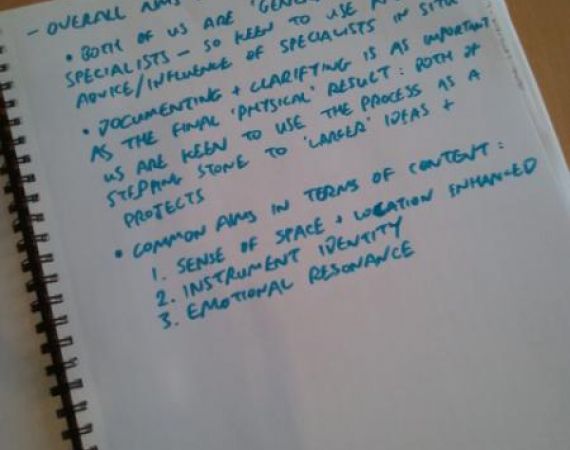 - OVERALL AIMS
• BOTH OF US ARE
SPECIALISTS - SO KEEN TO USE
ADVICE/INFLUENCE OF SPECIALISTS IN SITU
• DOCUMENTING + CLARIFYING IS AS IMPORTANT
AS THE FINAL 'PHYSICAL' RESULT: BOTH OF
US ARE KEEN TO USE THE PROCESS AS A
STEPPING STONE TO 'LARGER' IDEAS +
PROJECTS
• COMMON AIMS IN TERMS OF CONTENT:
1. SENSE OF SPACE + LOCATION ENHANCED
2. INSTRUMENT IDENTITY
3. EMOTIONAL RESONANCE